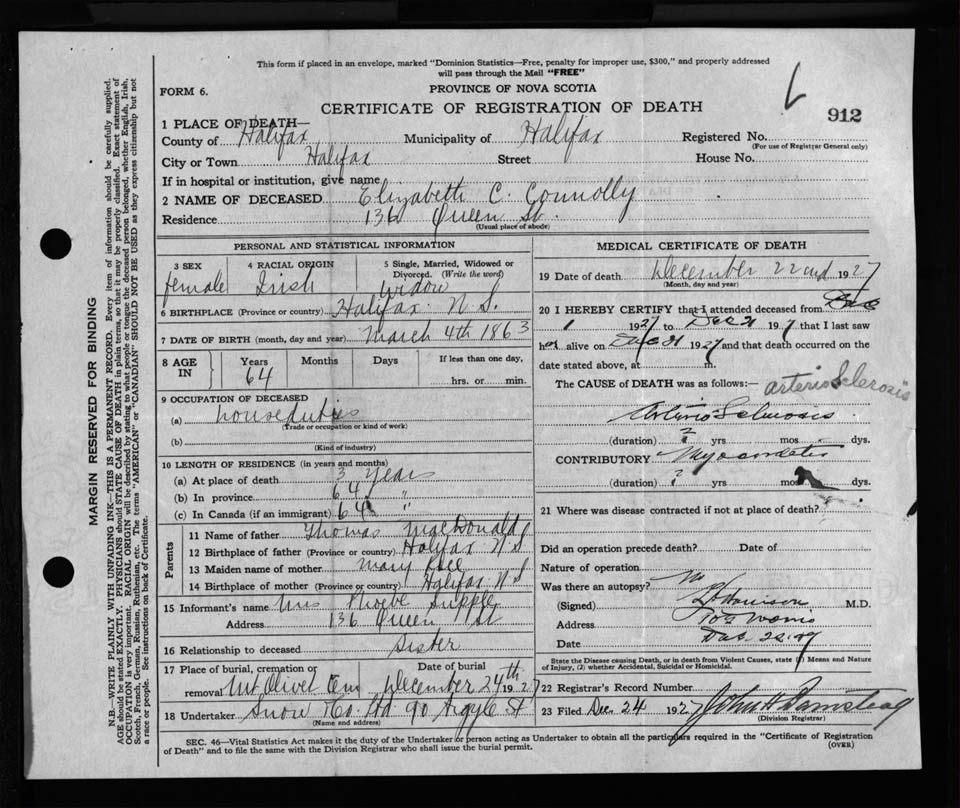 This form if placed in an envelope, marked "Dominion Statistics—Free, penalty for improper use, $300," and properly addressed
will pass through the Mail "FREE"
FORM 6.
PROVINCE OF NOVA SCOTIA
CERTIFICATE OF REGISTRATION OF DEATH
912
1 PLACE OF DEATH—
County of Halifax Municipality of Halifax Registered No.
(For use of Registrar General only)
City or Town Halifax Street House No.
If in hospital or institution, give name
2 NAME OF DECEASED Elizabeth C. Connolly
Residence 136 Queen St.
(Usual place of abode)
PERSONAL AND STATISTICAL INFORMATION
3 SEX 4 RACIAL ORIGIN 5 Single, Married, Widowed or
Divorced. (Write the word)
female Irish Widow
6 BIRTHPLACE (Province or country) Halifax N.S.
7 DATE OF BIRTH (month, day and year) March 4th 1863
8 AGE IN Years Months Days If less than one day,
64 hrs. or min.
9 OCCUPATION OF DECEASED
(a) house duties
(Trade or occupation or kind of work)
(b)
(Kind of industry)
10 LENGTH OF RESIDENCE (in years and months)
(a) At place of death 3 years
(b) In province 64 "
(c) In Canada (if an immigrant) 64 "
Parents
11 Name of father Thomas MacDonald
12 Birthplace of father (Province or country) Halifax N S
13 Maiden name of mother Mary
14 Birthplace of mother (Province or country) Halifax N S
15 Informant's name Mrs Phoebe Supple
Address 136 Queen St
16 Relationship to deceased Sister
17 Place of burial, cremation or Date of burial
removal Mt Olivet Cem December 24th 1927
18 Undertaker Snow Co. Ltd 90 Argyle St
(Name and address)
MEDICAL CERTIFICATE OF DEATH
19 Date of death December 22nd 1927
(Month, day and year)
20 I HEREBY CERTIFY that I attended deceased from Dec
1 1927 to Dec 21 1927 that I last saw
her alive on Dec 21 1927 and that death occurred on the
date stated above, at m.
The CAUSE of DEATH was as follows:— arterio Sclerosis
Arterio Sclerosis
(duration) ? yrs mos dys.
CONTRIBUTORY Myocarditis
(duration) ? yrs mos dys.
21 Where was disease contracted if not at place of death?
Did an operation precede death? Date of
Nature of operation
Was there an autopsy? No
(Signed) M.D.
Address
Date Dec.
State the Disease causing Death, or in death from Violent Causes, state (1) Means and Nature
of Injury, (2) whether Accidental, Suicidal or Homicidal.
22 Registrar's Record Number
23 Filed Dec. 24 1927 John H Barnstead
(Division Registrar)
SEC. 46—Vital Statistics Act makes it the duty of the Undertaker or person acting as Undertaker to obtain all the particulars required in the "Certificate of Registration
of Death" and to file the same with the Division Registrar who shall issue the burial permit.
(OVER)
MARGIN RESERVED FOR BINDING
N.B.—WRITE PLAINLY WITH UNFADING INK—THIS IS A PERMANENT RECORD. Every item of information should be carefully supplied.
AGE should be stated EXACTLY. PHYSICIANS should STATE CAUSE OF DEATH in plain terms, so that it may be properly classified. Exact statement of
OCCUPATION is very important. RACIAL ORIGIN will be described by stating to what people or tongue the deceased person belonged, whether English, Irish,
Scotch, French, German, Russian, Ruthenian, etc. The terms "AMERICAN" or "CANADIAN" SHOULD NOT BE USED as they express citizenship but not
a race or people. See instructions on back of Certificate.